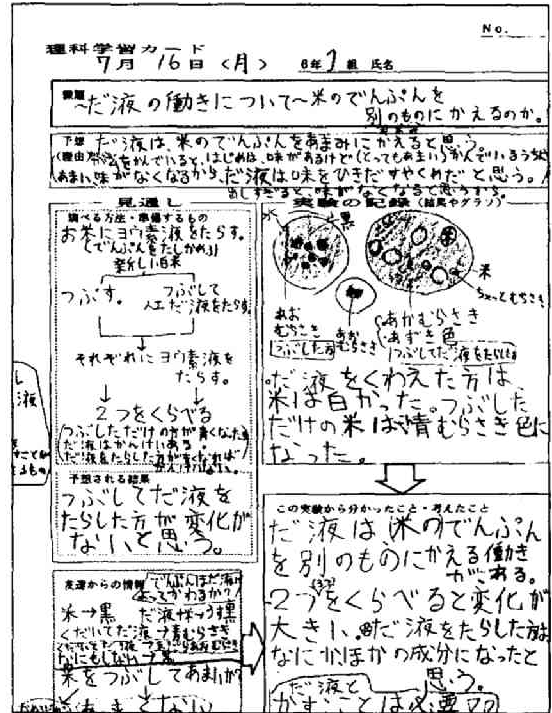 No.
理科学習カード
7月 16日 (月) 6年 1組 氏名
課題
~だ液の働きについて~米のでんぷんを
別のものにかえるのか。
予想
だ液は、米のでんぷんをあまみにかえると思う。
(理由)
をかんでいると、はじめは、味があるけど(とってもあまい)かんでいるうちに
あまい味がなくなるから、だ液は味をひきだすやくめだと思う。
味がなくなると思うから。
見通し
調べる方法・準備するもの
お米にヨウ素液をたらす。
(でんぷんをたしかめる)
新しい白米
つぶす。
つぶして
人工だ液をたらす
それぞれにヨウ素液を
たらす。
2つをくらべる
つぶしただけの方が青くなった
だ液はかんけいある
だ液をたらした方が
予想される結果
つぶしてだ液を
たらした方が変化が
ないと思う。
友達からの情報
でんぷんはだ液に
よってかわるか?
米→黒
くだいてだ液→青むらさき
なにもしない→
米をつぶしてあまいか
実験の記録(結果やグラフ)
水
黒
米
ちょっとむらさき
あお
むらさき
つぶした方
あか
むらさき
あかむらさき
あずき色
つぶしてだ液をたらした
だ液をくわえた方は、
米は白かった。つぶした
だけの米は青むらさき色に
なった。
この実験から分かったこと・考えたこと
だ液は米のでんぷん
を別のものにかえる働き
がある。
2つをくらべると変化が
大きい。だ液をたらした方は
なにかほかの成分になったと
思う。
だ液と
かすことは必要